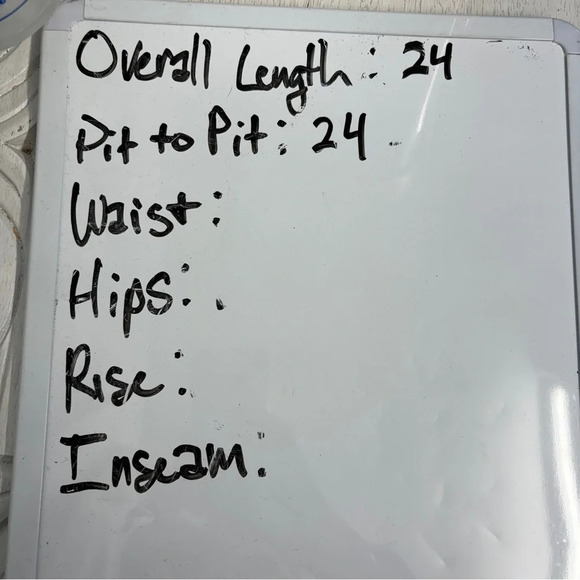 Overall Length: 24
Pit to Pit: 24
Waist:
Hips:
Rise:
Inseam: